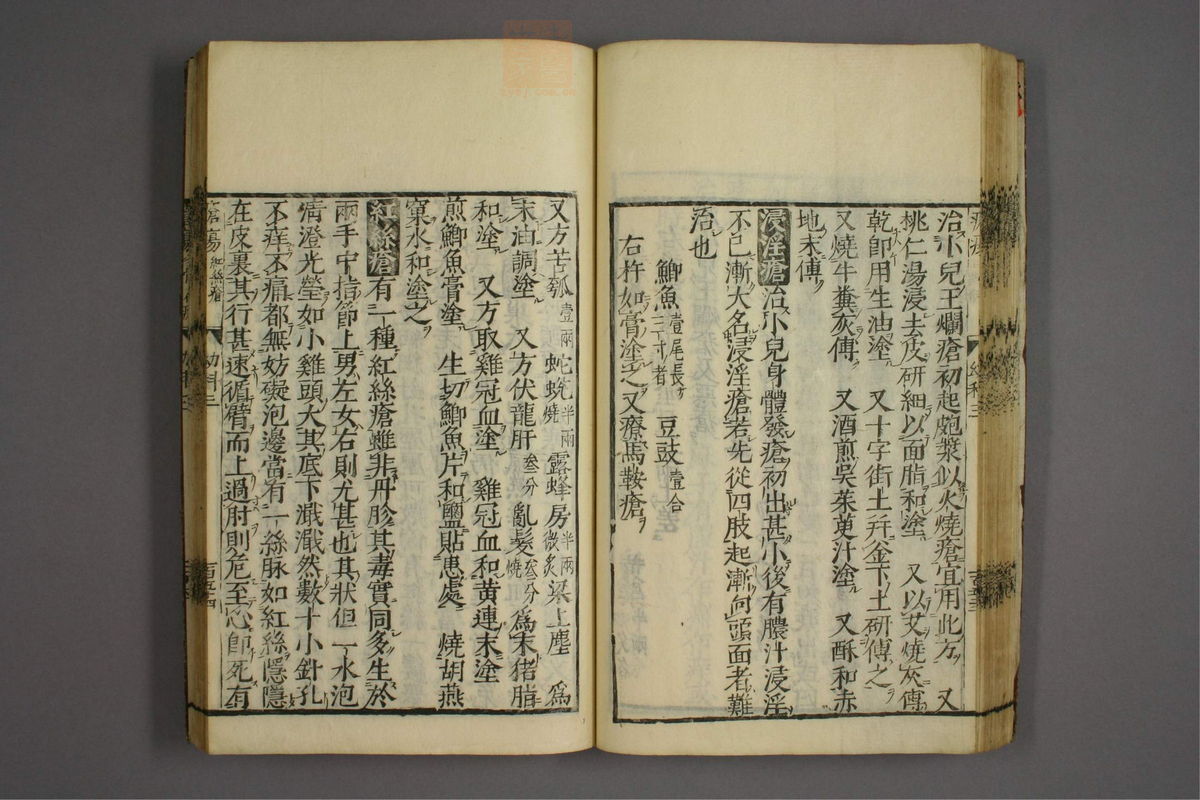 治小兒王爛瘡初起皰漿似火燒瘡宜用此方　又
桃仁湯浸去皮研細以面脂和塗　又以艾燒灰傅
乾即用生油塗　又十字街土并釜下土研傅之
又燒牛糞灰傅　又酒煎吳茱萸汁塗　又酥和赤
地末傅
浸淫瘡治小兒身體發瘡初出甚小後有膿汁浸淫
不已漸大名浸淫瘡若先從四肢起漸向頭面者難
治也
鯽魚壹尾長三寸者　豆豉壹合
右杵如膏塗之又療馬鞍瘡
又方苦瓠壹兩蛇蛻半兩燒露蜂房半兩微炙梁上塵　爲
末油調塗　又方伏龍肝叄分亂髮叄分燒爲末猪脂
和塗　又方取雞冠血塗　雞冠血和黄連末塗
煎鯽魚膏塗　生切鯽魚片和鹽貼患處　燒胡燕
窠水和塗之
紅絲瘡有一種紅絲瘡雖非丹胗其毒實同多生於
兩手中指節上男左女右則尤甚也其狀但一水泡
清澄光瑩如小雞頭大其底下濈濈然數十小針孔
不痒不痛都無妨礙泡邊當有一絲脉如紅絲隱隱
在皮裏其行甚速循臂而上過肘則危至心即死有
瘡瘍 紅絲瘡
幼科三